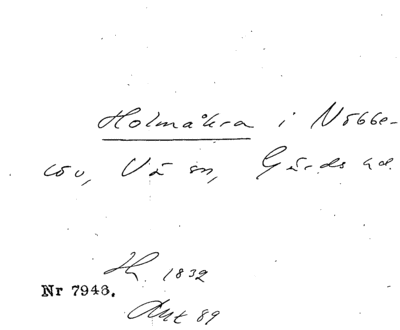 Holmåkra i Nöbbe-
löv, Vä sn, Gärds hd.
1832
Nr 7943.
Ant 89